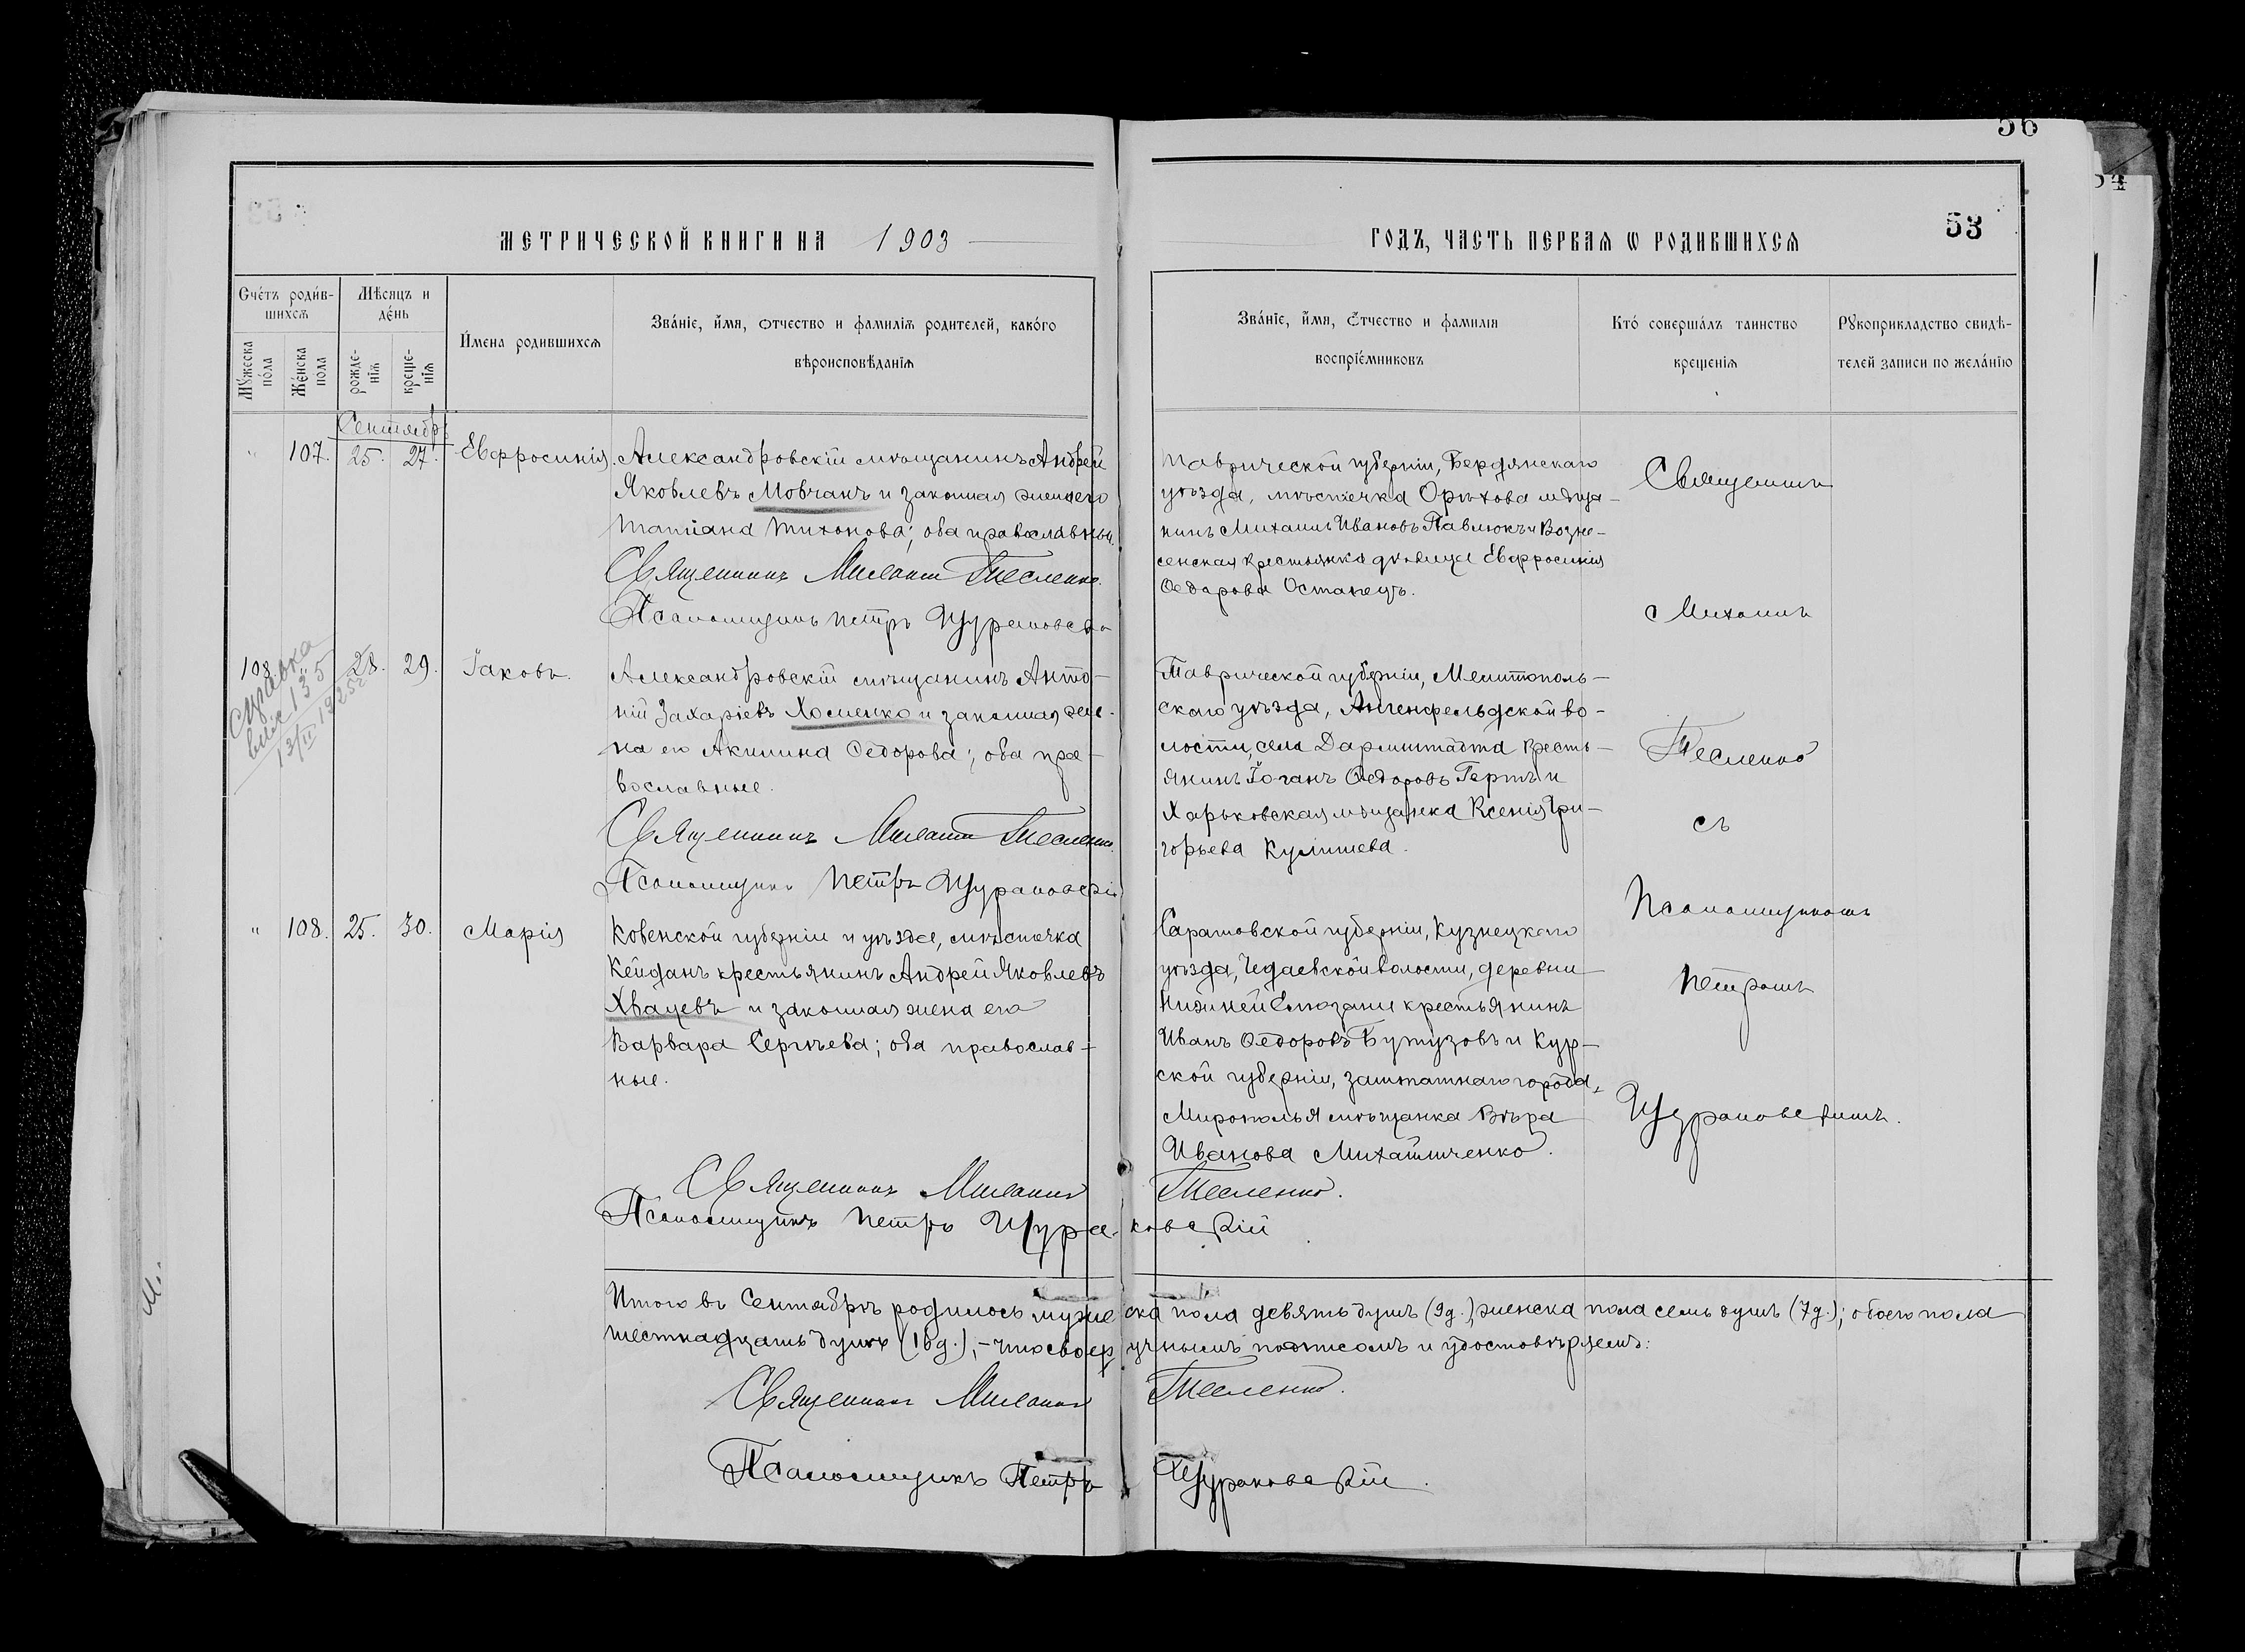 56
54
53
МЕТРИЧЕСКОЙ КНИГИ НА 1903
ГОДЪ, ЧАСТЬ ПЕРВАѦ Ѡ РОДИВШИХСѦ
Счétъ роди́в-
шихсѧ
Мѣсѧцъ и
де́нь
Му́жеска
по́ла
Же́нска
пола
рожде-
нїѧ
креще-
нїѧ
И́мена родившихсѧ
Зва́нїе, и́мя, отчество и фамилїѧ родителей, како́го
вѣроисповѣданїѧ
Зва́нїе, и́мя, о́тчество и фамилія
воспрїе́мниковъ
Кто́ соверша́лъ таинство
крещенїѧ
Рꙋкоприкладство свидѣ-
телей записи по жела́нїю
Сентябрь
" 107. 25. 27. Евфросинія.
Александровскій мѣщанинъ Андрей
Яковлевъ Мовчанъ и законная жена его
Татіана Тихонова; оба православны.
Священникъ Милатій Тесленко.
Псаломщикъ Петръ Щураковскій
Таврической губерніи, Бердянскаго
уѣзда, мѣстечка Орѣхова мѣща-
нинъ Михаилъ Ивановъ Павлюкъ и Возне-
сенская крестьянка дѣвица Евфросинія
Ѳедорова Останецъ.
108. 28. 29. Іаковъ.
справка
135
13/II 1925г
Александровскій мѣщанинъ Анто-
ній Захаріевъ Хоменко и законная же-
на его Акилина Ѳедорова; оба пра-
вославные.
Священникъ Тесленко.
Псаломщикъ Петръ Щураковскій
Таврической губерніи, Мелитополь-
скаго уѣзда, Айгенфельдской во-
лости, села Дармштадта кресть-
янинъ Іоганъ Ѳедоровъ Гертъ и
Харьковская мѣщанка Ксенія Гри-
горьева Кулишева.
" 108. 25. 30. Марія
Ковенской губерніи и уѣзда, мѣстечка
Кейданъ крестьянинъ Андрей Яковлевъ
Хвацевъ и законная жена его
Варвара Сергѣева; оба православ-
ные.
Саратовской губерніи, Кузнецкаго
уѣзда, Чедаевской волости, деревни
Нижней Елюзани крестьянинъ
Иванъ Ѳедоровъ Бутузовъ и Кур-
ской губерніи, заштатнаго города,
Мирополья мѣщанка Вѣра
Иванова Михайличенко.
Священникъ
Михаилъ
Тесленко
съ
Псаломщикомъ
Петромъ
Щураковскимъ.
Священникъ Тесленко.
Псаломщикъ Петръ Щураковскій
Итого въ Сентябрѣ родилось мужеска пола девять душъ (9 д.), женска пола семь душъ (7 д.); обоего пола
шестнадцать душъ (16 д.), – что своеручнымъ подписомъ и удостовѣряемъ:
Священникъ Тесленко.
Псаломщикъ Петръ Щураковскій.